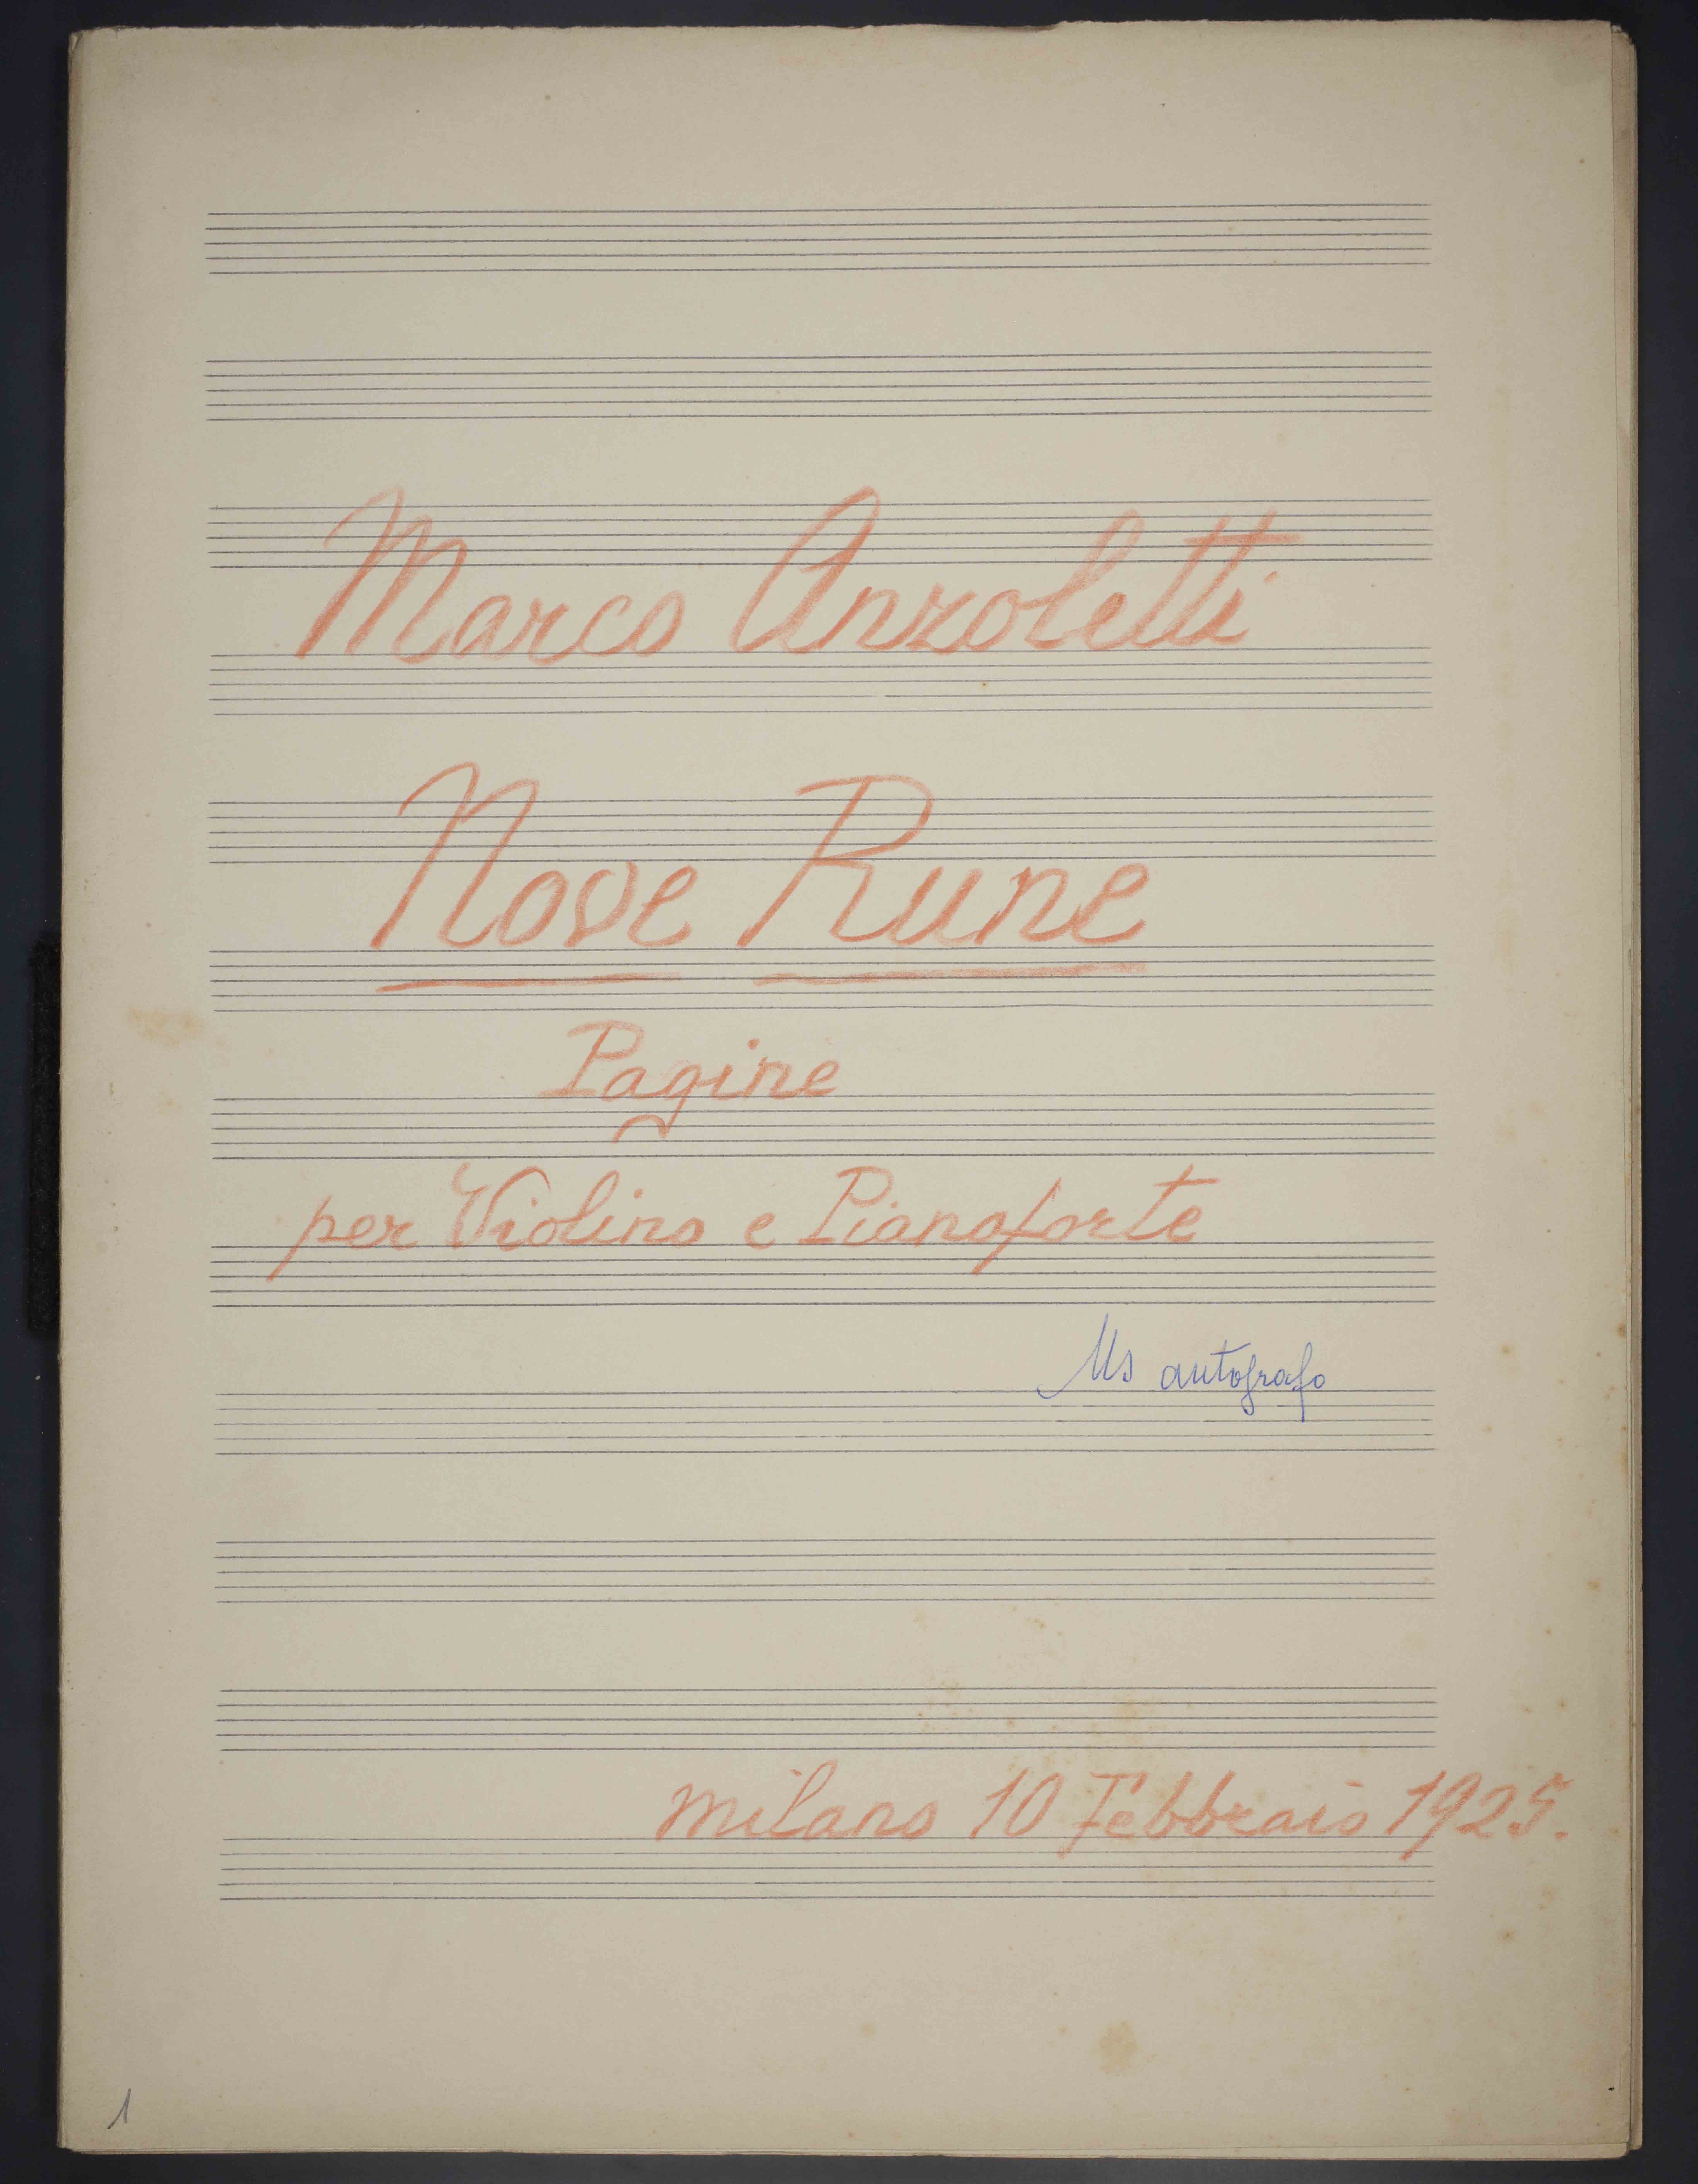 Marco Anzoletti
Nove Rune
Pagine
per Violino e Pianoforte
Ms autografo
Milano 10 Febbraio 1925.
1